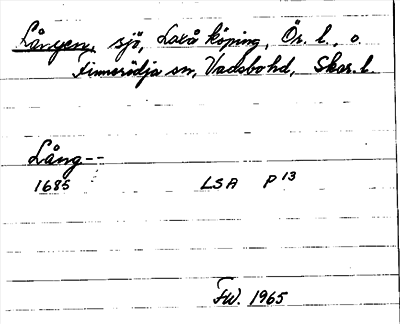 Lången, sjö, Laxå köping, Ör. l., o.
Finnerödja sn, Vadsbo hd, Skar. l.
Lång--
1685 LSA P 13
FW. 1965